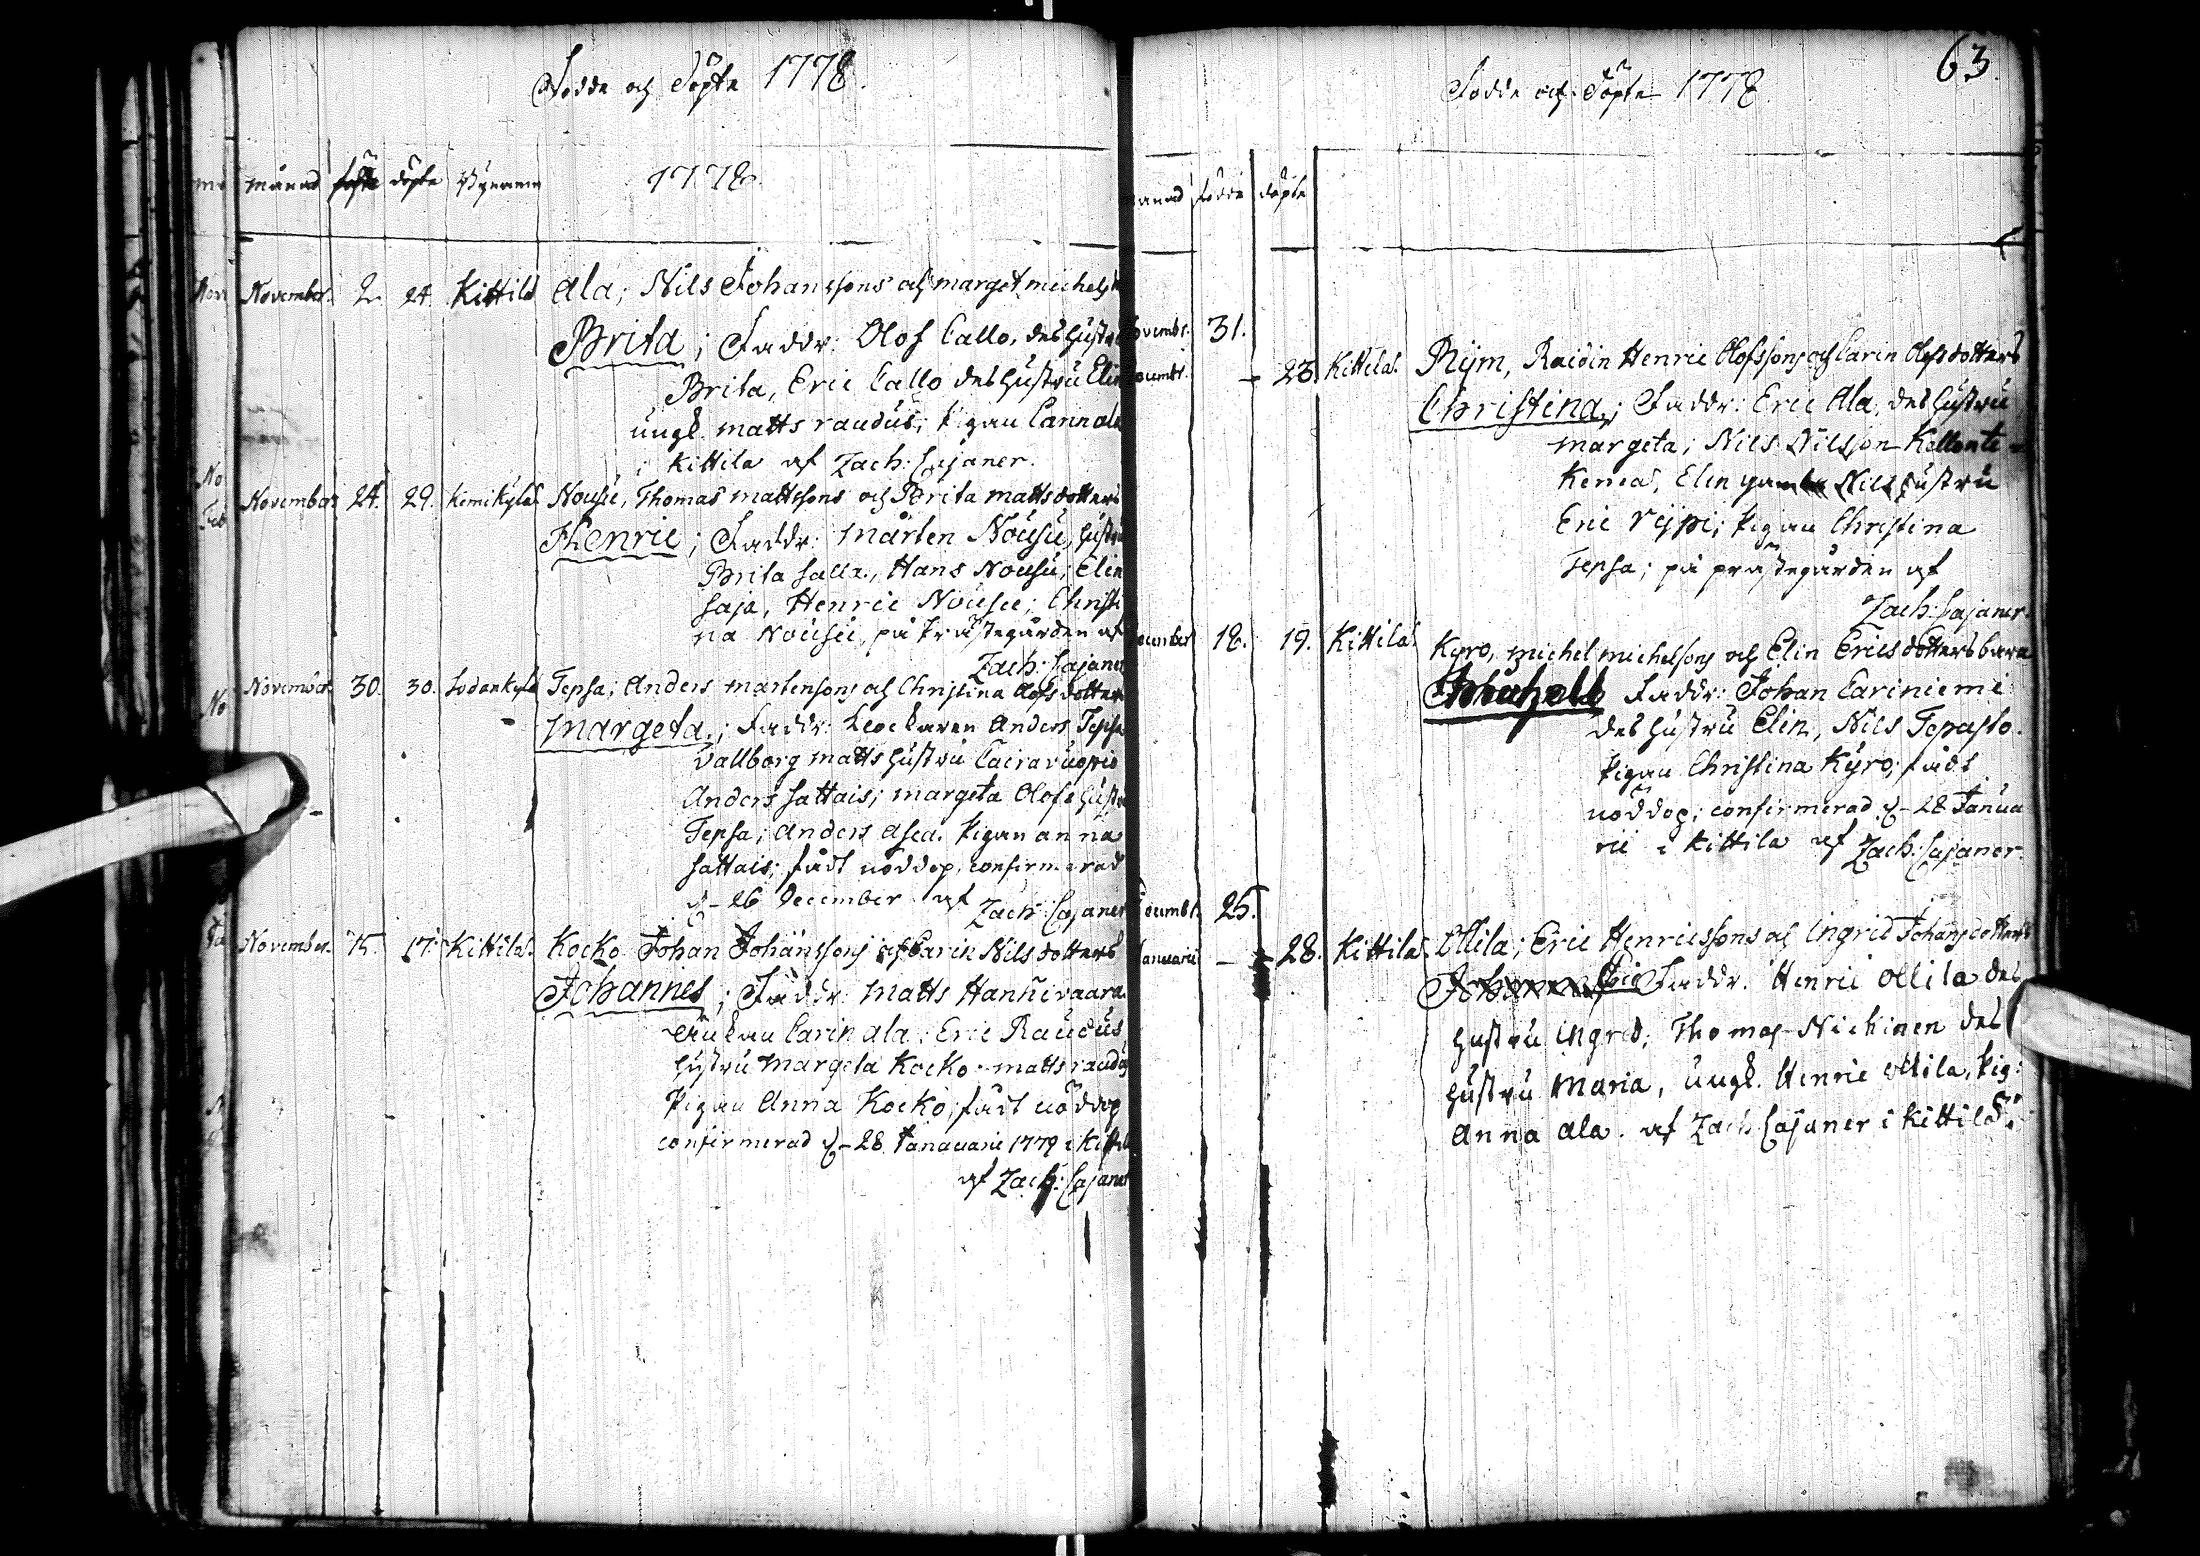 Födde och Döpte 1778.
månad födde döpte Bynamn 1778.
November. 2. 24. Kittilä Ala; Nils Johanssons och marget michelsd
Brita; Faddr: Olof Callo, des hustru
Brita, Eric Callo des hustru Elin
ungk. matts raudus; Pigan Carin ala
i Kittilä af Zach: Cajaner.
November 24. 29. Kemikylä Nousu, Thomas mattssons och Brita matts dotters
Henric; Faddr: Mårten Nousu, hustru
Brita Salla, Hans Nousu; Elin
Saja, Henric Nousu; Christi
na Nousu, på Prästegården af
Zach: Cajaner
November. 30. 30. Sodankylä Tepsa; Anders mårtensons och Christina Olofs dotters
margeta.; Faddr: Klockaren Anders Tepsa
Vallborg matts hustru Cairavuopio
Anders Sattais; margeta Olofs hustru
Tepsa; Anders Asca. Pigan anna
Sattais; fådt nöddop, confirmerad
d. 26 December af Zach: Cajaner
November. 15. 17. Kittilä. Kocko Johan Johanssons och Carin Nils dotters
Johannes; Faddr: Matts Hannivaara
Änkan Carin ala; Eric Raudus
hustru Margeta Kocko. matts raudus
Pigan Anna Kocko; fådt nöddop
confirmerad d. 28. Januarii 1779 i Kittilä
af Zach: Cajaner
63.
Födde och Döpte 1778.
månad födde döpte
November. 31.
Decembr. – 23. Kittilä. Rym, Raidin Henric Olofssons och Carin Olofsdotters
Christina; Faddr: Eric Ala, des hustru
margeta; Nils Nilsson Kellonte-
Kemä, Elin gamla Nils hustru
Eric rijpi; Pigan Christina
Tepsa; på prästegården af
Zach: Cajaner.
December 18. 19. Kittilä. Kyro, michel michelsons och Elin Ericsdotters barn
Faddr: Johan Cariniemi
des hustru Elin, Nils Tepasto.
Pigan Christina Kyro; fådt
nöddop; confirmerad d. 28 Janua
rii i Kittilä af Zach: Cajaner.
Decembr. 25.
Januarii – 28. Kittilä. Ollila; Eric Henricssons och Ingrid Johansdotters
Eric Faddr. Henric Ollila des
hustru Ingrid; Thomas Nickinen des
hustru Maria, ungk. Henric Ollila, Pig:
Anna Ala. af Zach Cajaner i Kittilä.